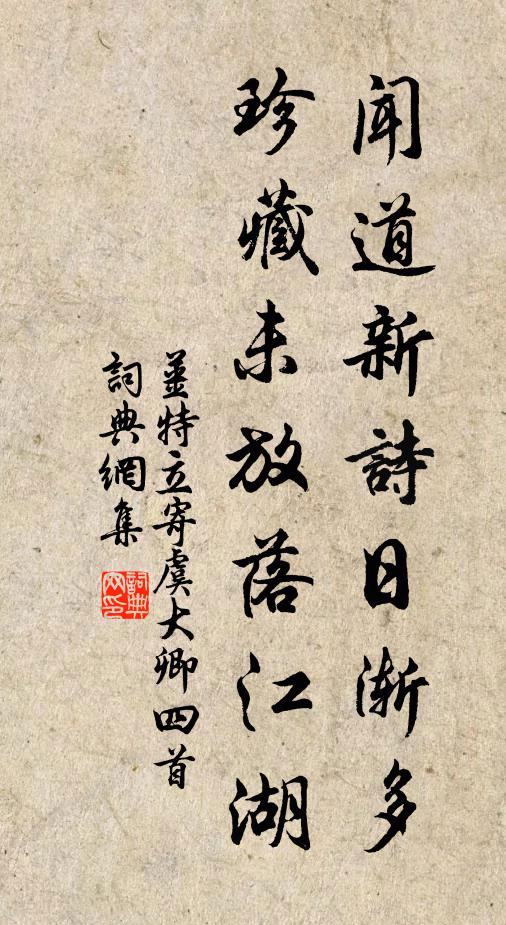 聞道新詩日漸多
珍藏未放落江湖
姜特立寄虞大卿四首
詞典網集
詞典网印